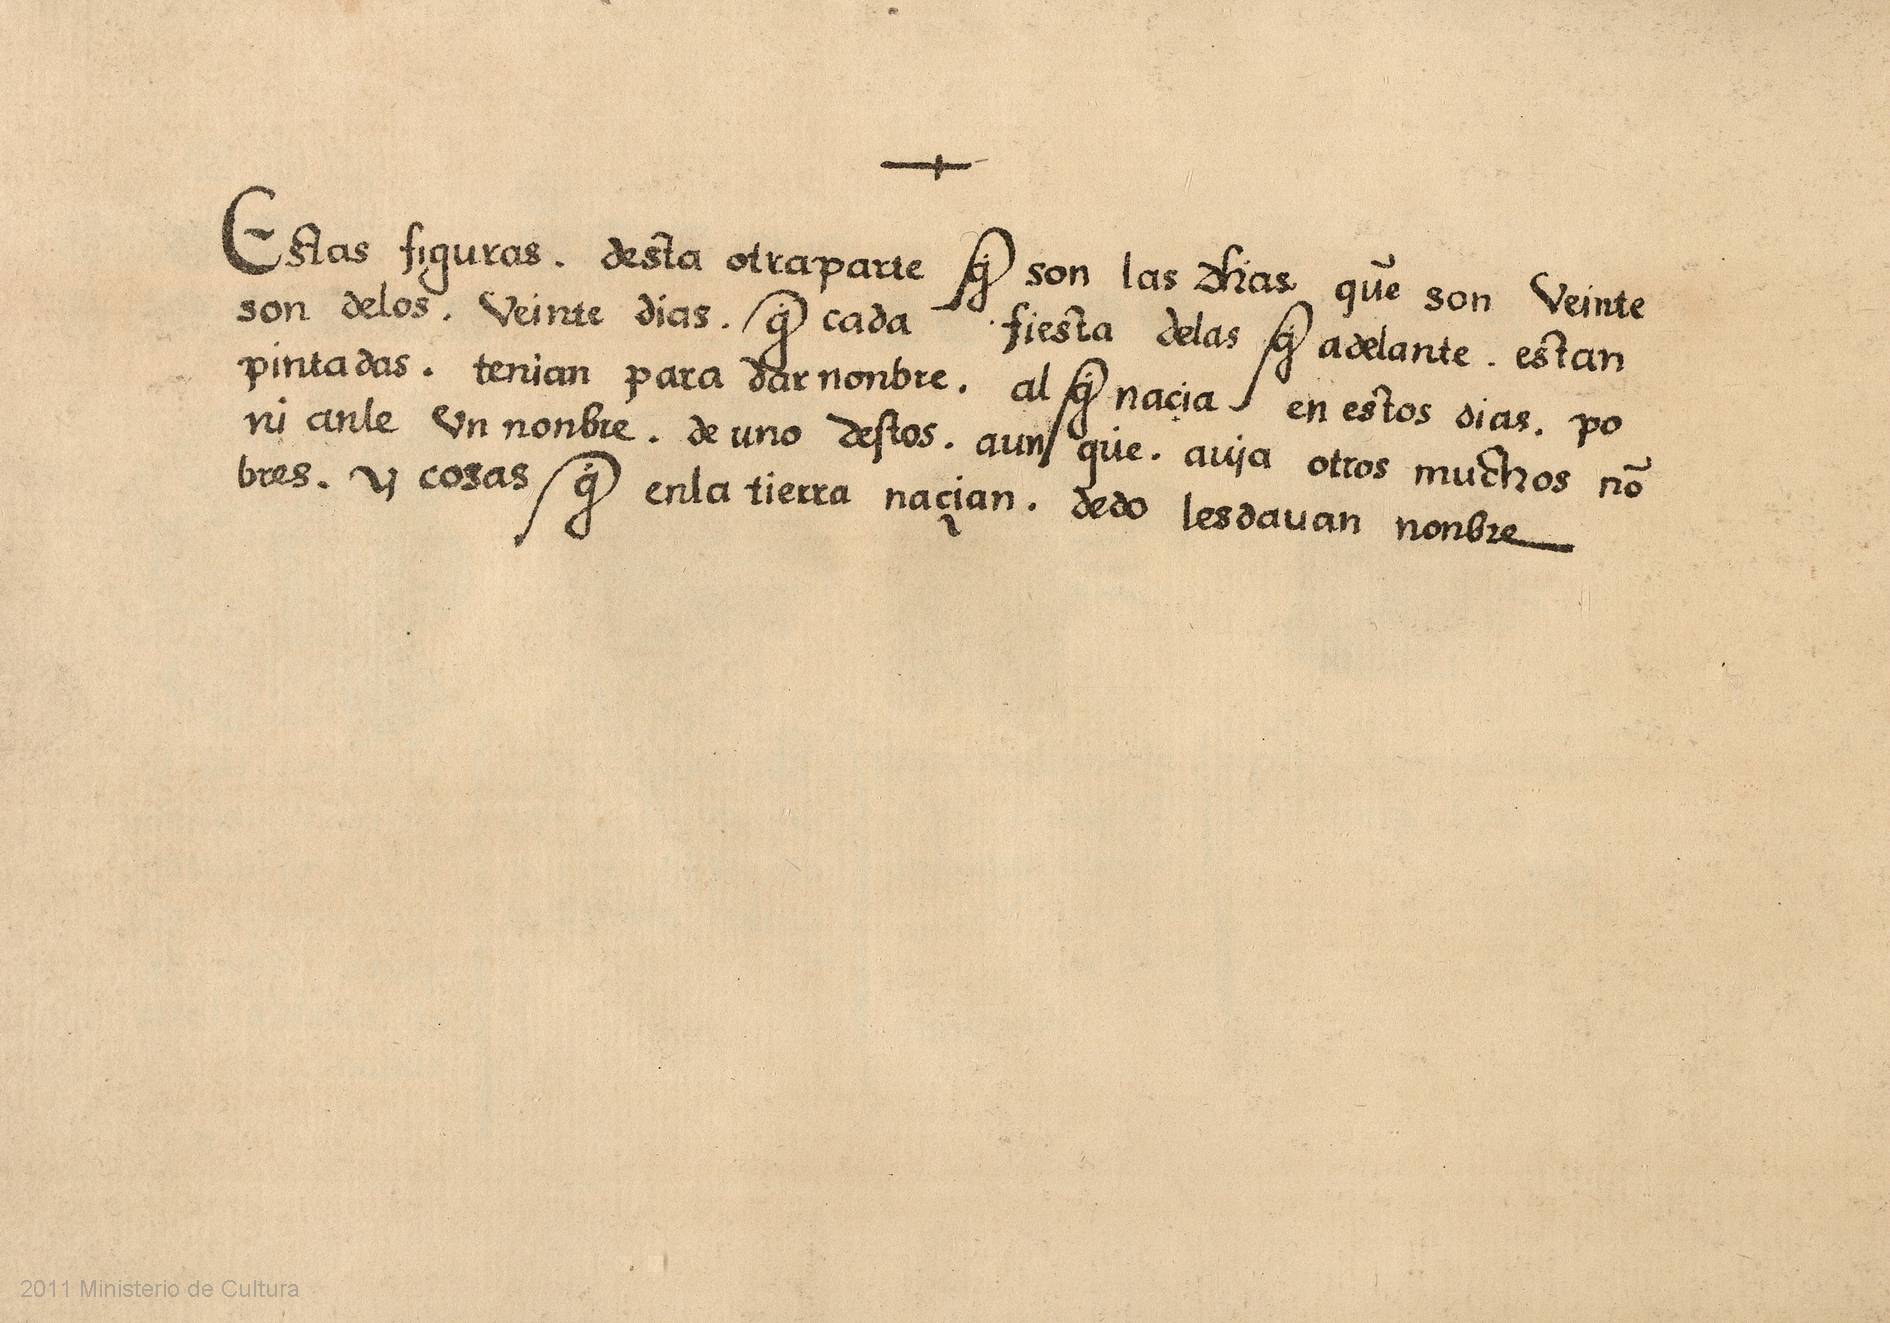 Estas figuras. desta otra parte q̃ son las dhas que son Veinte
son delos. Veinte dias. q̃ cada fiesta delas q̃ adelante. estan
pintadas. tenian para dar nonbre. al q̃ naçia en estos dias. po
ni anle Vn nonbre. de uno destos. aun que. auja otros muchos nõ
bres. y cosas q̃ enla tierra naçian. dedo les dauan nonbre
2011 Ministerio de Cultura